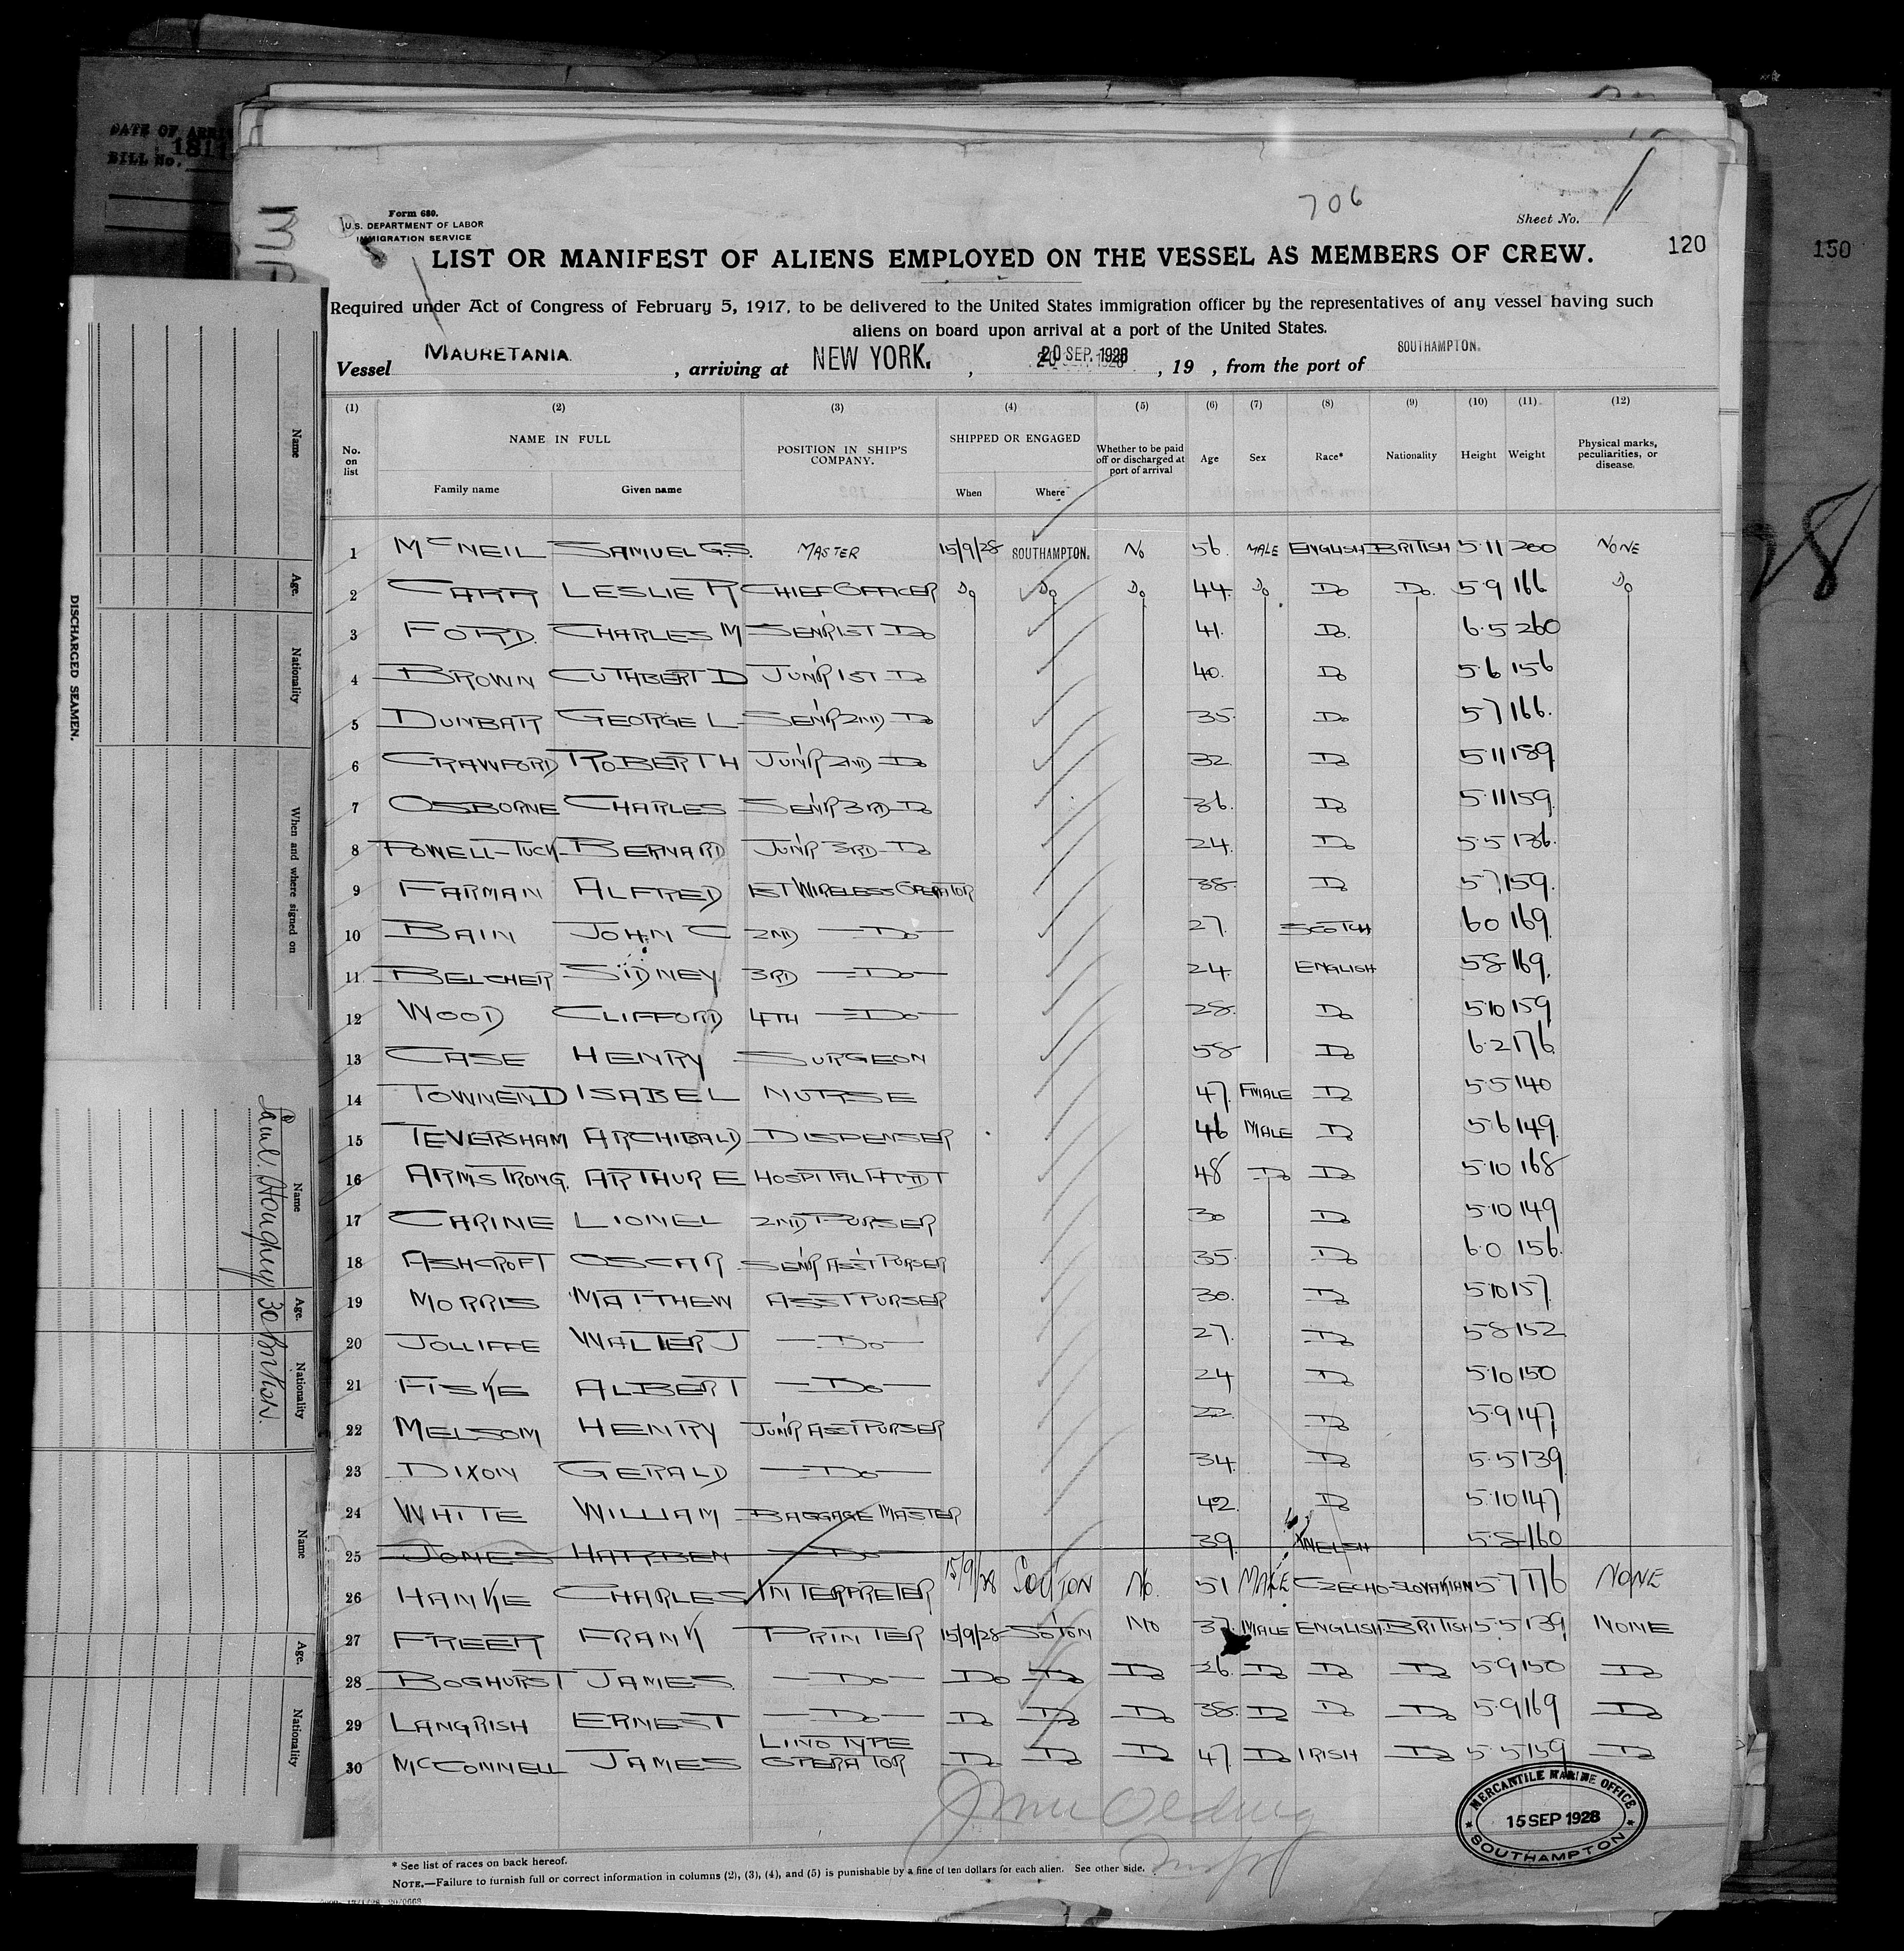 DATE OF ARRI
1811
BILL No.
706
Form 680.
U.S. DEPARTMENT OF LABOR
IMMIGRATION SERVICE
Sheet No. 1
120
150
LIST OR MANIFEST OF ALIENS EMPLOYED ON THE VESSEL AS MEMBERS OF CREW.
Required under Act of Congress of February 5, 1917, to be delivered to the United States immigration officer by the representatives of any vessel having such
aliens on board upon arrival at a port of the United States.
Vessel MAURETANIA. , arriving at NEW YORK. , 20 SEP. 1928 , 19 , from the port of SOUTHAMPTON.
(1) (2) (3) (4) (5) (6) (7) (8) (9) (10) (11) (12)
No. on list NAME IN FULL Family name Given name POSITION IN SHIP'S COMPANY. SHIPPED OR ENGAGED When Where Whether to be paid off or discharged at port of arrival Age Sex Race* Nationality Height Weight Physical marks, peculiarities, or disease.
1 McNEIL SAMUEL G.S. MASTER 15/9/28 SOUTHAMPTON. No 56. MALE ENGLISH BRITISH 5·11 200 NONE
2 CARR LESLIE R CHIEF OFFICER Do Do Do 44. Do Do Do. 5·9 166 Do
3 FORD. CHARLES M SEN'R 1ST Do 41. Do. 6·5 260
4 BROWN CUTHBERT D JUN'R 1ST Do 40. Do 5·6 156
5 DUNBAR GEORGE L SEN'R 2ND Do 35. Do 5·7 166.
6 CRAWFORD ROBERT H JUN'R 2ND Do 32 Do 5·11 189
7 OSBORNE CHARLES SEN'R 3RD Do 36. Do 5·11 159.
8 POWELL-TUCK BERNARD JUN'R 3RD Do 24. Do 5·5 136.
9 FARMAN ALFRED 1ST WIRELESS OPERATOR 38. Do 5·7 159.
10 BAIN JOHN C 2ND Do 27. SCOTCH 6·0 169
11 BELCHER SIDNEY 3RD Do 24. ENGLISH 5·8 169.
12 WOOD CLIFFORD 4TH Do 28. Do 5·10 159
13 CASE HENRY SURGEON 58 Do 6·2 176
14 TOWNEND ISABEL NURSE 47. FMALE Do 5·5 140
15 TEVERSHAM ARCHIBALD DISPENSER 46 MALE Do 5·6 149
16 ARMSTRONG. ARTHUR E HOSPITAL ATTD'T 48 Do Do 5·10 168
17 CARINE LIONEL 2ND PURSER 30 Do 5·10 149
18 ASHCROFT OSCAR SEN'R ASS'T PURSER 35. Do 6·0 156.
19 MORRIS MATTHEW ASST PURSER 30. Do 5·10 157.
20 JOLLIFFE WALTER J Do 27. Do 5·8 152
21 FISKE ALBERT Do 24 Do 5·10 150
22 MELSOM HENRY JUN'R ASST PURSER 22. Do 5·9 147
23 DIXON GERALD Do 34. Do 5·5 139
24 WHITE WILLIAM BAGGAGE MASTER 42. Do 5·10 147
25 JONES HARBEN Do 39. WELSH 5·8 160
26 HANKE CHARLES INTERPRETER 15/9/28 SOU'TON No. 51 MALE CZECHO-SLOVAKIAN 5·7 176 NONE
27 FREER FRANK PRINTER 15/9/28 SO'TON NO 37. MALE ENGLISH BRITISH 5·5 139 NONE
28 BOGHURST JAMES. Do Do Do Do 26. Do Do Do 5·9 150 Do
29 LANGRISH ERNEST Do Do Do Do 38. Do Do Do 5·9 169 Do
30 McCONNELL JAMES LINOTYPE OPERATOR Do Do Do 47. Do IRISH Do 5·5 159 Do
MERCANTILE MARINE OFFICE
15 SEP 1928
SOUTHAMPTON
* See list of races on back hereof.
NOTE.—Failure to furnish full or correct information in columns (2), (3), (4), and (5) is punishable by a fine of ten dollars for each alien. See other side.
DISCHARGED SEAMEN.
Name Age. Nationality When and where signed on
Name Age. Nationality
30 British.
Name Age. Nationality